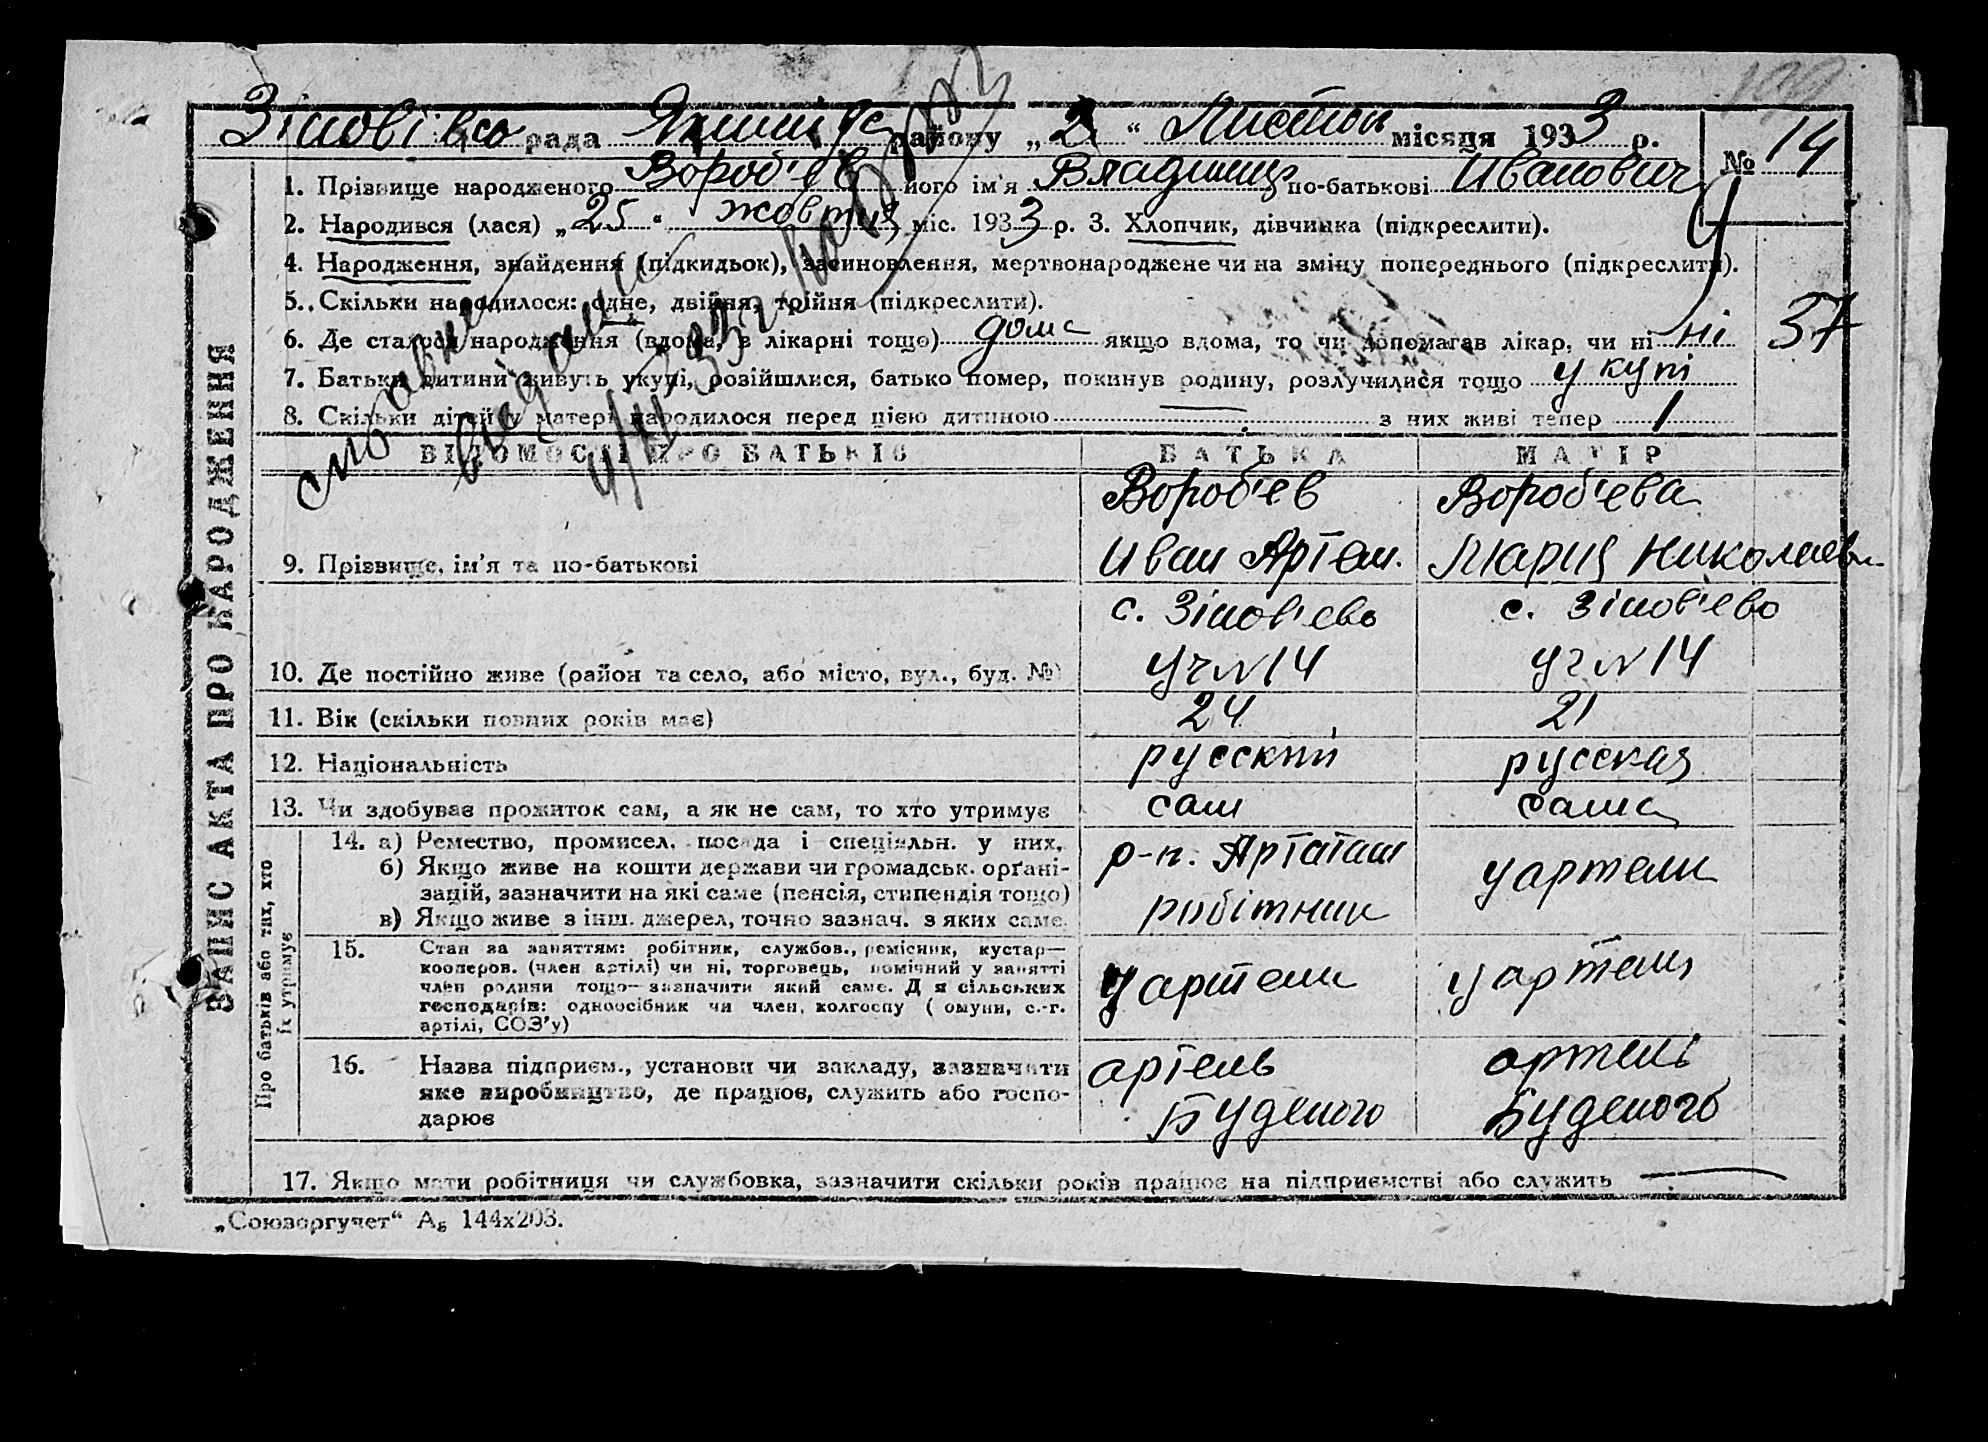 рада району „2“ Листоп місяця 1933 р.
№ 14
1. Прізвище народженого Вороб'ев його ім'я Владимир по-батькові Иванович
2. Народився (лася) „25“ жовтня міс. 1933 р. 3. Хлопчик, дівчинка (підкреслити).
4. Народження, знайдення (підкидьок), засиновлення, мертвонароджене чи на зміну попереднього (підкреслити).
5. Скільки народилося: одне, двійня, трійня (підкреслити).
6. Де сталося народження (вдома, в лікарні тощо) дома якщо вдома, то чи допомагав лікар, чи ні ні
37
7. Батьки дитини живуть укупі, розійшлися, батько помер, покинув родину, розлучилися тощо у купі
8. Скільки дітей у матері народилося перед цією дитиною — з них живі тепер 1
ЗАПИС АКТА ПРО НАРОДЖЕННЯ
ВІДОМОСТІ ПРО БАТЬКІВ БАТЬКА МАТІР
Вороб'ев Вороб'ева
9. Прізвище, ім'я та по-батькові Иван Артем. Мария Николаевн
с. Зінов'ево с. Зінов'ево
10. Де постійно живе (район та село, або місто, вул., буд. №) уч N 14 уч N 14
11. Вік (скільки повних років має) 24 21
12. Національність русский русская
13. Чи здобуває прожиток сам, а як не сам, то хто утримує сам сама
Про батьків або тих, хто їх утримує
14. а) Ремество, промисел, посада і спеціяльн. у них,
б) Якщо живе на кошти держави чи громадськ. організацій, зазначити на які саме (пенсія, стипендія тощо)
в) Якщо живе з інш. джерел, точно зазнач. з яких саме
робітник
у артели
15. Стан за заняттям: робітник, службов., ремісник, кустар—
кооперов. (член артілі) чи ні, торговець, помічний у занятті
член родини тощо—зазначити який саме. Для сільських
господарів: одноосібник чи член, колгоспу (комуни, с.-г.
артілі, СОЗ'у)
у артели у артели
16. Назва підприєм., установи чи закладу, зазначити
яке виробництво, де працює, служить або господарює
артель Буденого
артелі Буденого
17. Якщо мати робітниця чи службовка, зазначити скільки років працює на підприємстві або служить —
„Союзоргучет“ А₅ 144х203.